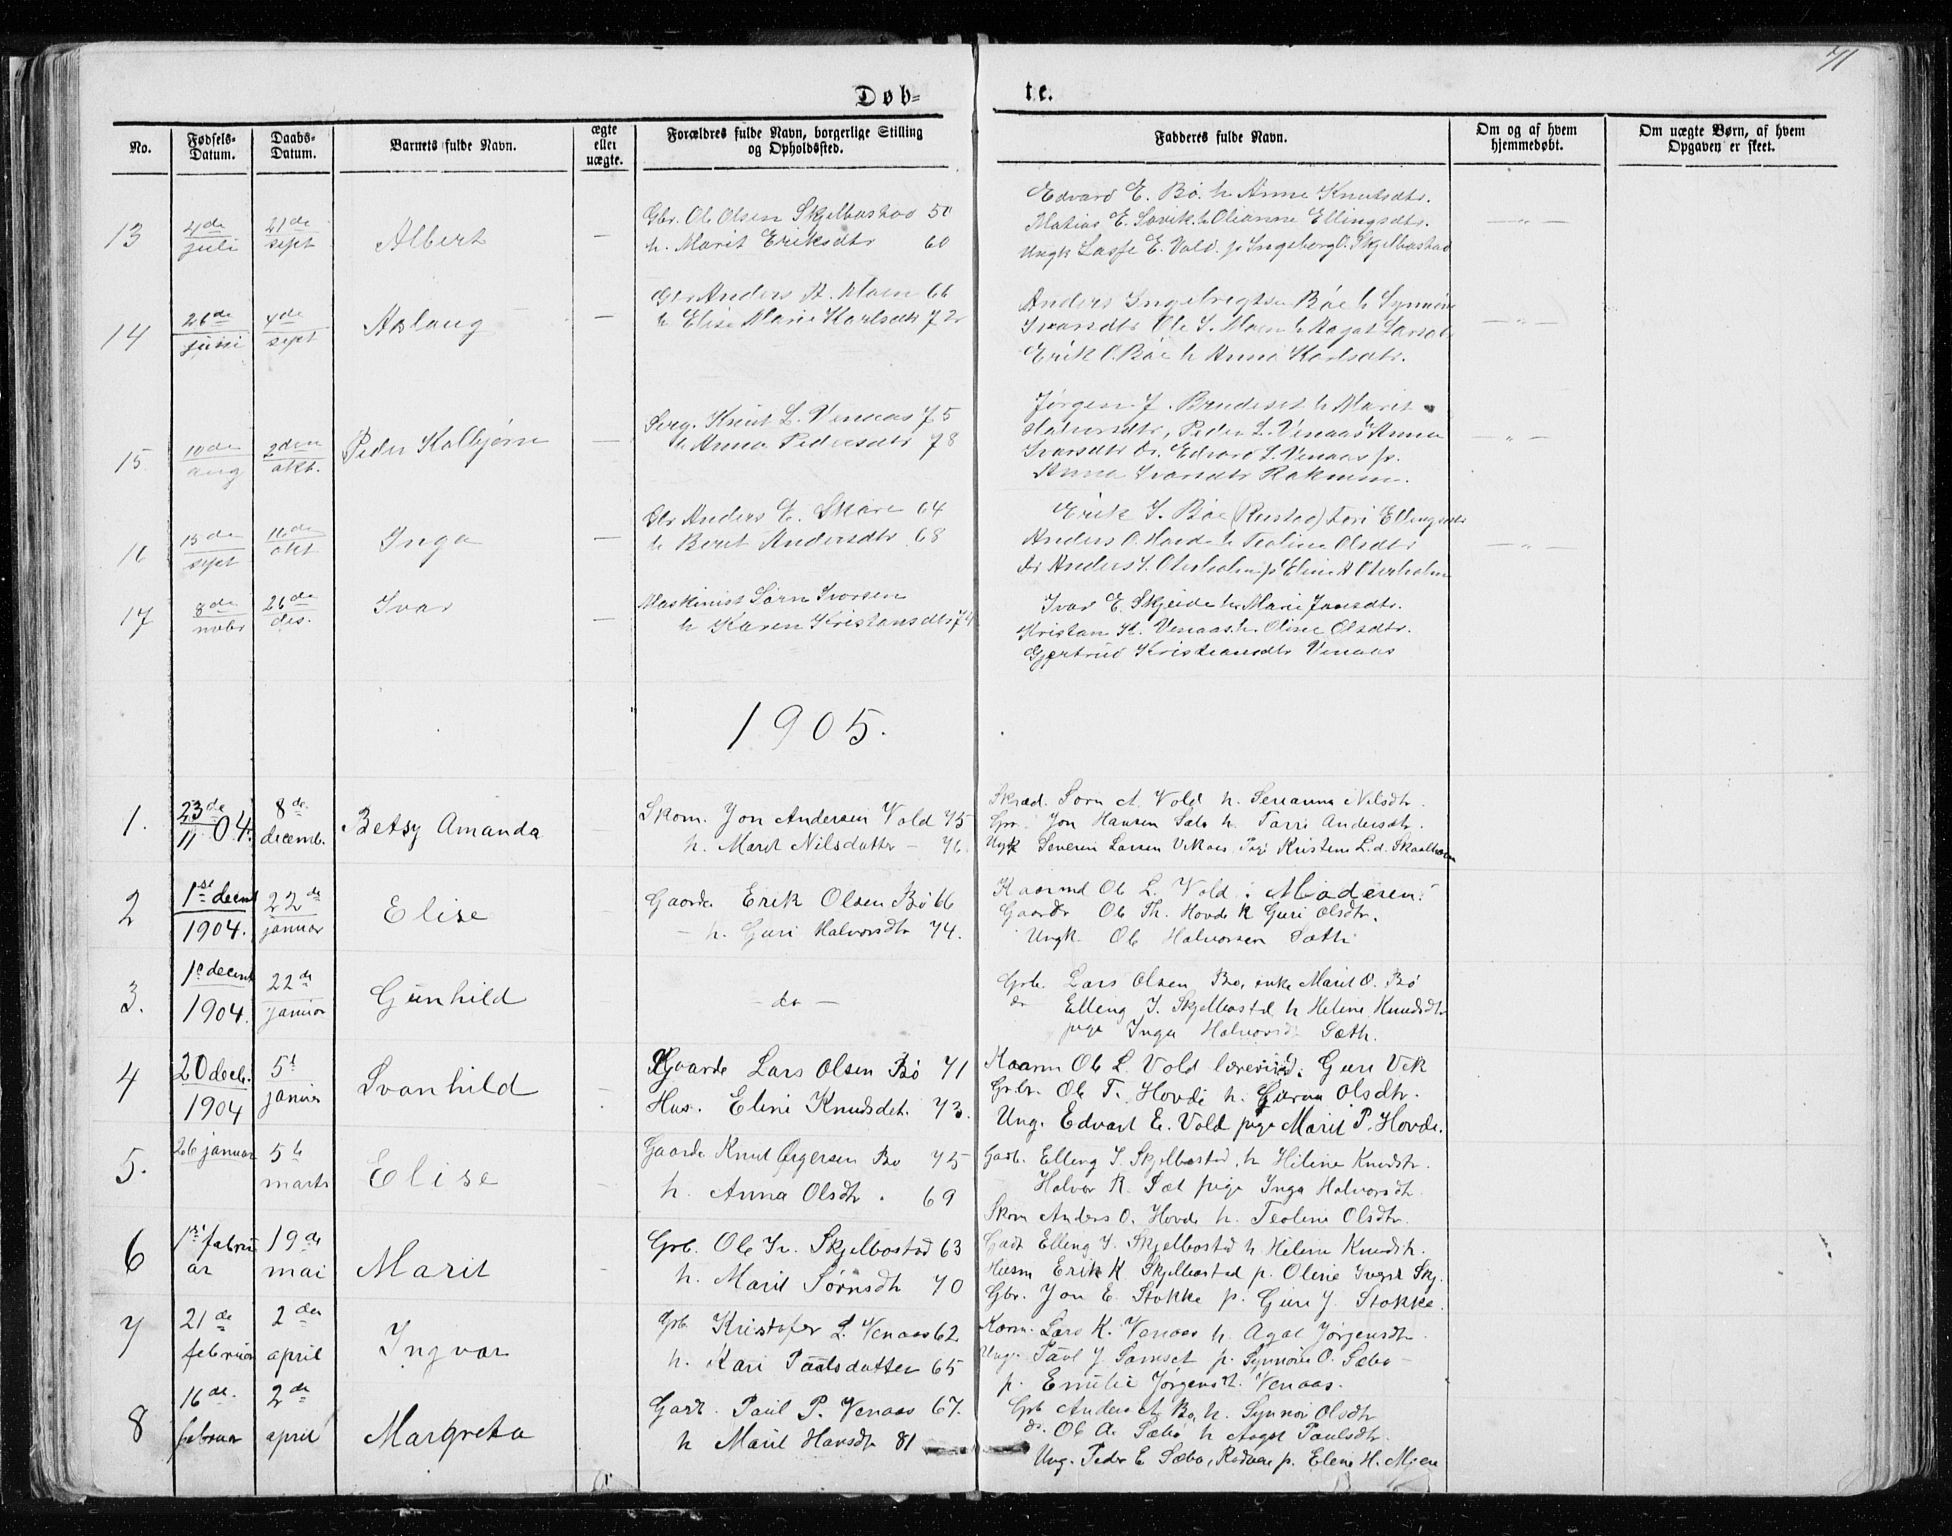 71
Døb-
te.
No.
Fødsels-
Datum.
Daabs-
Datum.
Barnets fulde Navn.
ægte
eller
uægte.
Forældres fulde Navn, borgerlige Stilling
og Opholdssted.
Fadderes fulde Navn.
Om og af hvem
hjemmedøbt.
Om uægte Børn, af hvem
Opgaven er skeet.
13
4de
juli
21de
sept
Albert
—
Gbr. Ole Olsen Skjelbostad 50
h. Marit Eriksdtr 60
Edvard E. Bø. h Anne Knutsdtr.
Matias E. h Olianne Ellingsdtr.
Ungk E. Vold. p Ingeborg O. Skjelbostad
— " —
14
26de
juni
4de
sept
Aslaug
—
Gbr Anders A. Moen 66
h Elise Marie Karlsdtr 72
Anders Ingebrigtsen Bøe h Synnøve
Ivarsdtr Ole I. Moen h Larsdtr
Erik O. Bøe h Anna Karlsdtr.
— " —
15
10de
aug
2den
okt.
Peder Kolbjørn
—
Serg. Knut L. Venaas 75
h Anna Pedersdtr 78
Jørgen J. h Marit
Halvorsdtr, Peder L. Venaas Anna
Ivarsdtr Edvard L. Venaas p.
Anna Ivarsdtr
— " —
16
15de
sept
16de
okt
Inga
—
Gbr Anders E. Skare 64
h Beret Andersdtr 68
Erik I. Bøe (Rustad) Ellingsdtr
Anders O. Hovde h Teoline Olsdtr
Anders I. Oterholm p Eline A Oterholm
— " —
17
8de
nobr
26de
des.
Ivar
—
Maskinist Søren Ivorsen
h Karen Kristansdtr 74
Ivar E. Skjeide h Marie Jansdtr.
Kristan K. Venaas h. Oline Olsdtr.
Gjertrud Kristiansdtr Venaas
1905.
1.
23de
11 04.
8de
decemb.
Betsy Amanda
Skom. Jon Andersen Vold 75
h. Marit Nilsdatter — 76.
Skræd. Sørn A. Vold h. Serianna Nilsdtr.
Gbr. Jon Hansen Sæbø h. Andersdtr.
Ungk Severin Larsen Kristine L.d.
2
1ste decmb
1904.
22de
januar
Elise
Gaardr. Erik Olsen Bø 66
— h. Guri Halvorsdtr 74.
Kaarmd Ole L. Vold :
Gaardr Ole Th. Hovde h Guri Olsdtr.
Ungk. Ole Halvorsen Sætt
3.
1e decmb
1904.
22de
januar
Gunhild
— do —
Grb. Lars Olsen Bø, enke Marit O. Bø
do Elling I. Skjelbostd h Heline Knudsdtr
pige Inga Halvorsd Sæth.
4
20 decb.
1904
5t
januar
Svanhild
—
Gaardr Lars Olsen Bø 71
Hus. Eline Knudsdtr. 73.
Kaarm Ole L. Vold Guri Vik
Grbr. Ole T. Hovde h. Olsdtr.
Ung. Edvart E. Vold pige Marit P. Hovde.
5.
26 januar
5te
marts
Elise
—
Gaardr Knut Bø 75
h. Anna Olsdtr. 69
Gadb. Elling I. Skjelbostad, h Heline Knudsdtr.
Halvor R. Sæt pige Inga Halvorsdtr.
Skom Anders O. Hovde h. Teoline Olsdtr.
6
1ste febru
ar
19de
mai
Marit
—
Grb. Ole Skjelbostad 63
h. Marit Sørnsdtr 70
Gadb Elling I. Skjelbostad h Heline Knudsdtr.
Husm Erik K Skjelbostad p. Oline Skj.
Gbr. Jon E. Stokke p. Guri J. Stokke.
7
21de
februar
2den
april
Ingvar
Grb Kristofer L. Venaas 62
h. Kari Paalsdatter 65
Kaarm. Lars K. Venaas h. Agat Jørgensdtr.
Ung. Paul J. p. Synnøve O. Sæbø —
p. Emilie Jørgensdt. Venaas.
8
16de.
februar
2de
april
Margreta
Gadb. Paul P. Venaas 67.
h Marit Hansdtr 81
Grb Anders A. Bø, h. Synnøv Olsdtr
do. Ole A. Sæbø h Agat Paulsdtr.
Ung. Peder E Sæbø, p. Elene H. Mjen